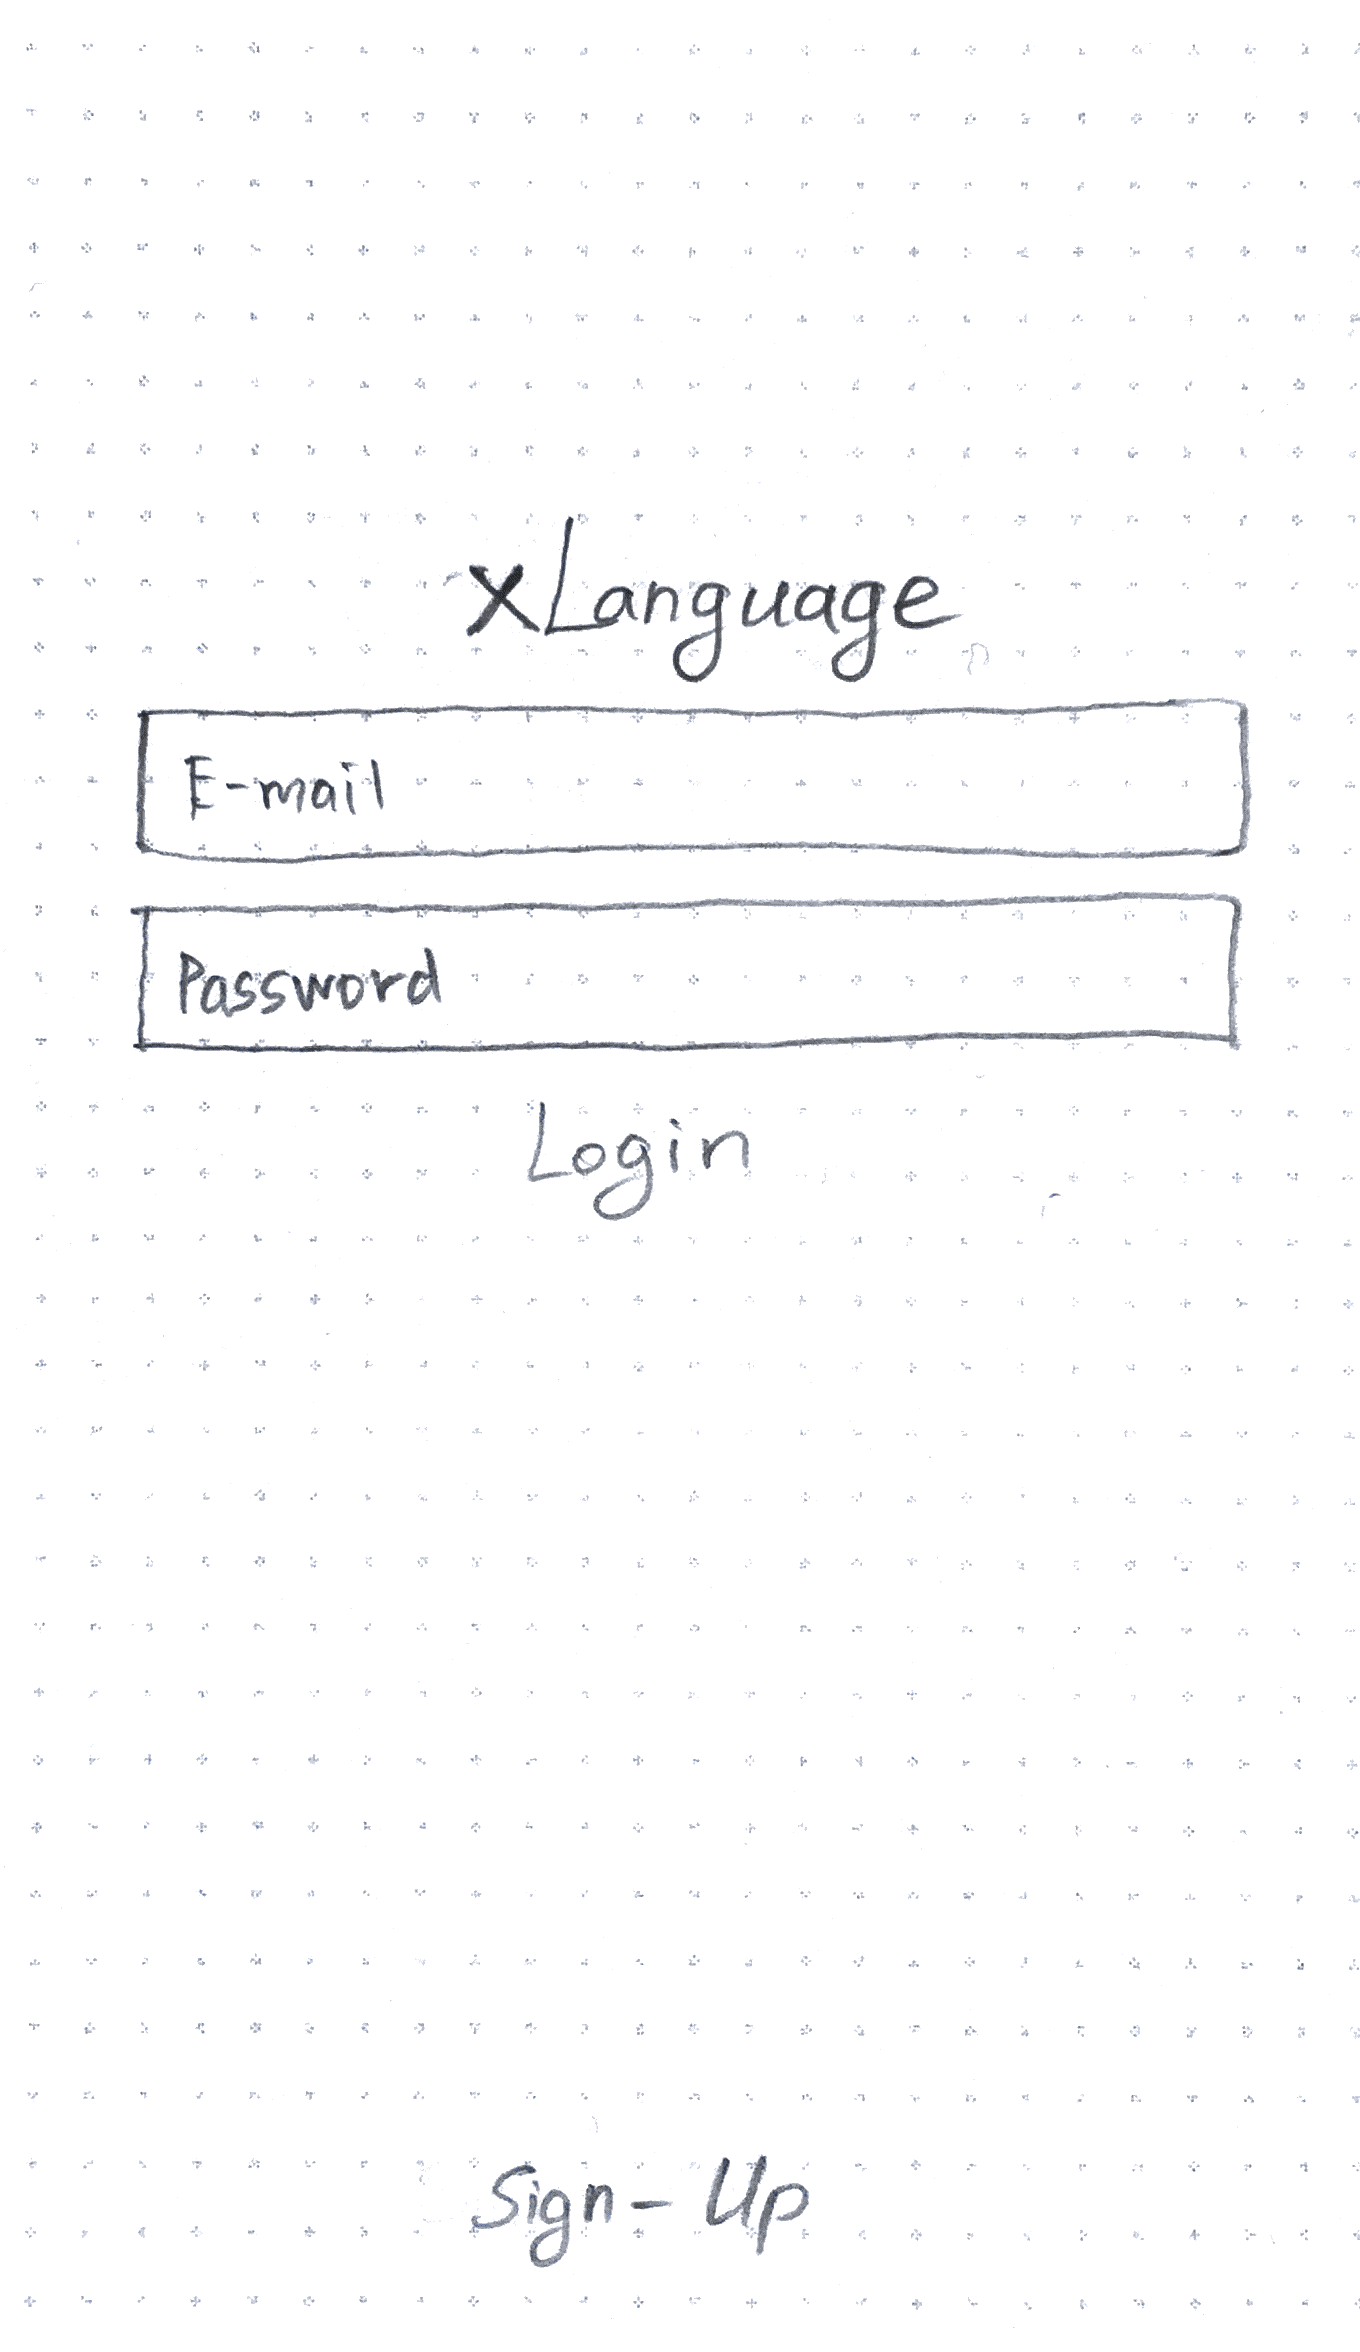 XLanguage
E-mail
Password
Login
Sign-Up